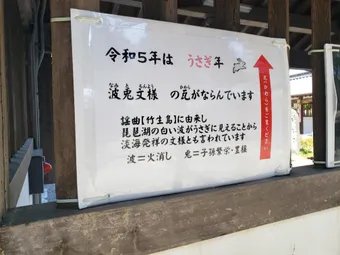 令和5年は うさぎ年
波兎文様 の瓦がならんでいます
謡曲【竹生島】に由来し
琵琶湖の白い波がうさぎに見えることから
淡海発祥の文様とも言われています
波＝火消し 兎＝子孫繁栄・豊穣